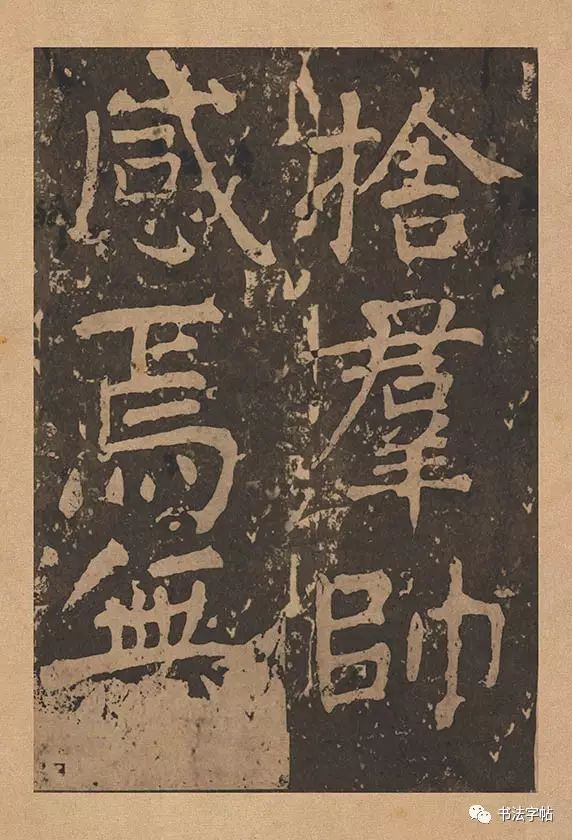 捨羣帥
感焉無
书法字帖